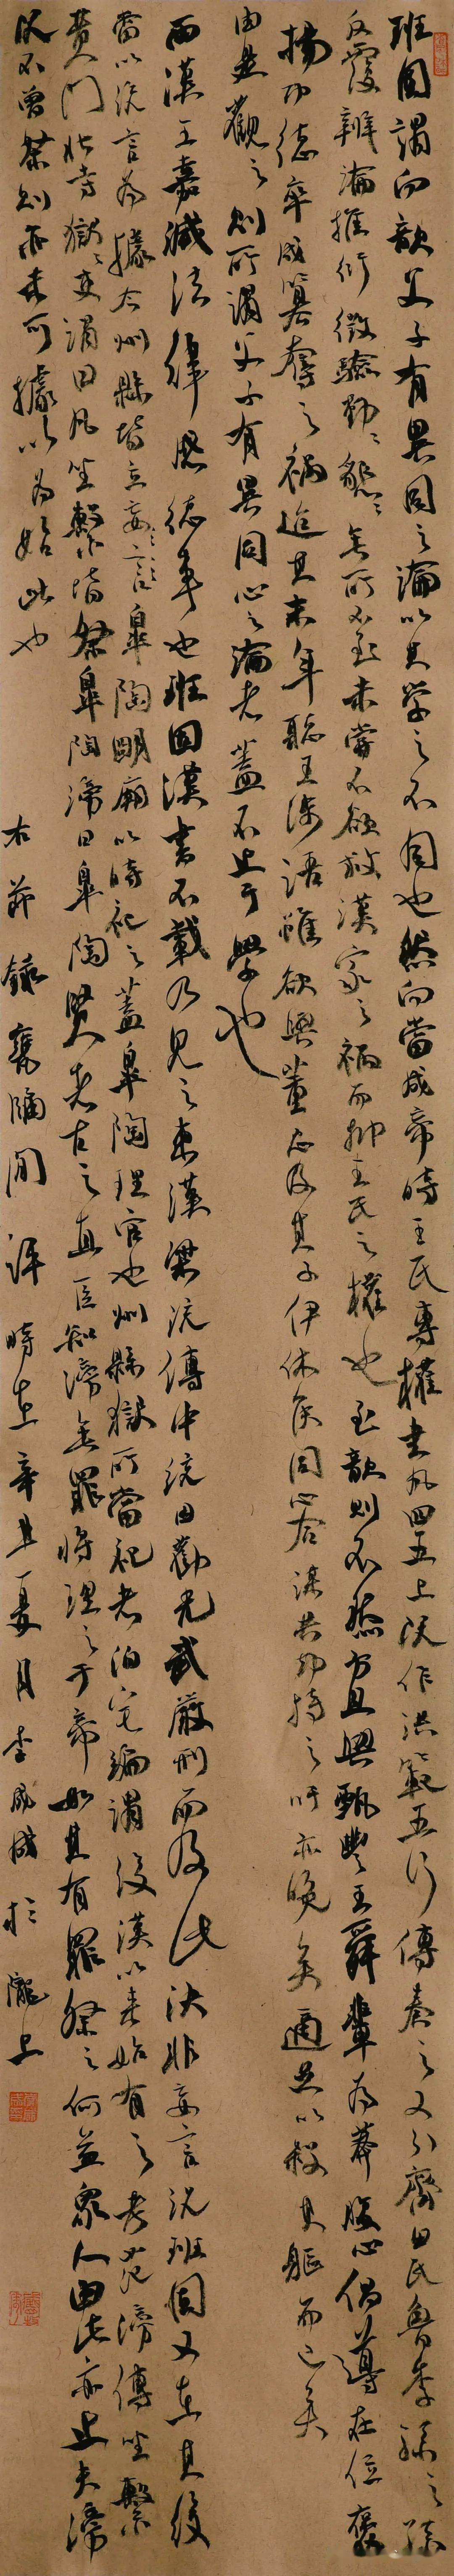 班固谓向歆父子有異同之論以其学之不同也然向當成帝時王氏專權王鳳四五上疏作洪範五行傳奏之又引齊田氏魯季孫之孫
反覆辨論推衍徵驗勤勤懇懇無所不至未嘗不欲救漢家之禍而抑王氏之權也至歆則不然方且與甄豐王舜輩為莽腹心倡導在位褒
揚功德卒成篡奪之禍迨其末年聽王涉語雖欲與董忠及其子伊休侯同心合謀共劫持之吁亦晚矣適足以殺其軀而已矣
由是觀之則所謂父子有異同心之論者蓋不止于學也
西漢王嘉減法律愚德事也班固漢書不載乃見之東漢梁統傳中統因勸光武嚴刑而及此決非妄言況班固又在其後
當以統言為據今州縣皆立妄言皋陶廟以時祀之蓋皋陶理官也州縣獄所當祀者泊宅編謂後漢以來始有之考范滂傳坐繫
黄門北寺獄吏謂曰凡坐繫皆祭皋陶滂曰皋陶賢者古之直臣知滂無罪將理之于帝如其有罪祭之何益衆人由此亦止夫滂
以不曾祭則亦未可據以為始此也
右节録甕牖閒評時在辛丑夏月李成於瀧上